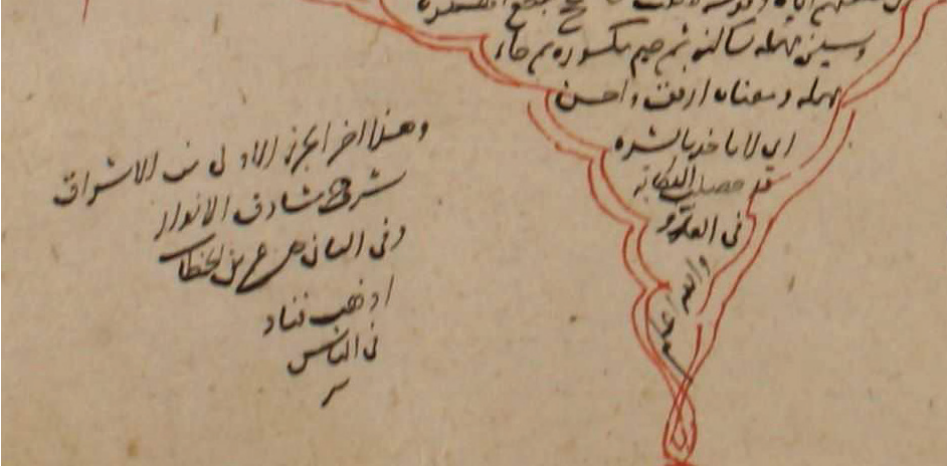 وسين مهملة ساكنة ثم جيم مكسورة ثم حاء
مهملة ومعناه ارفق واحسن
اى لا تاخذ بالشدة
قد حصل الكتابة
فى العكر
والله
وهذا اخر الجزء الاول من الاشراق
شرح مشارق الانوار
وفى الثانى عمر بن الخطاب
اذهب فناد
فى الناس